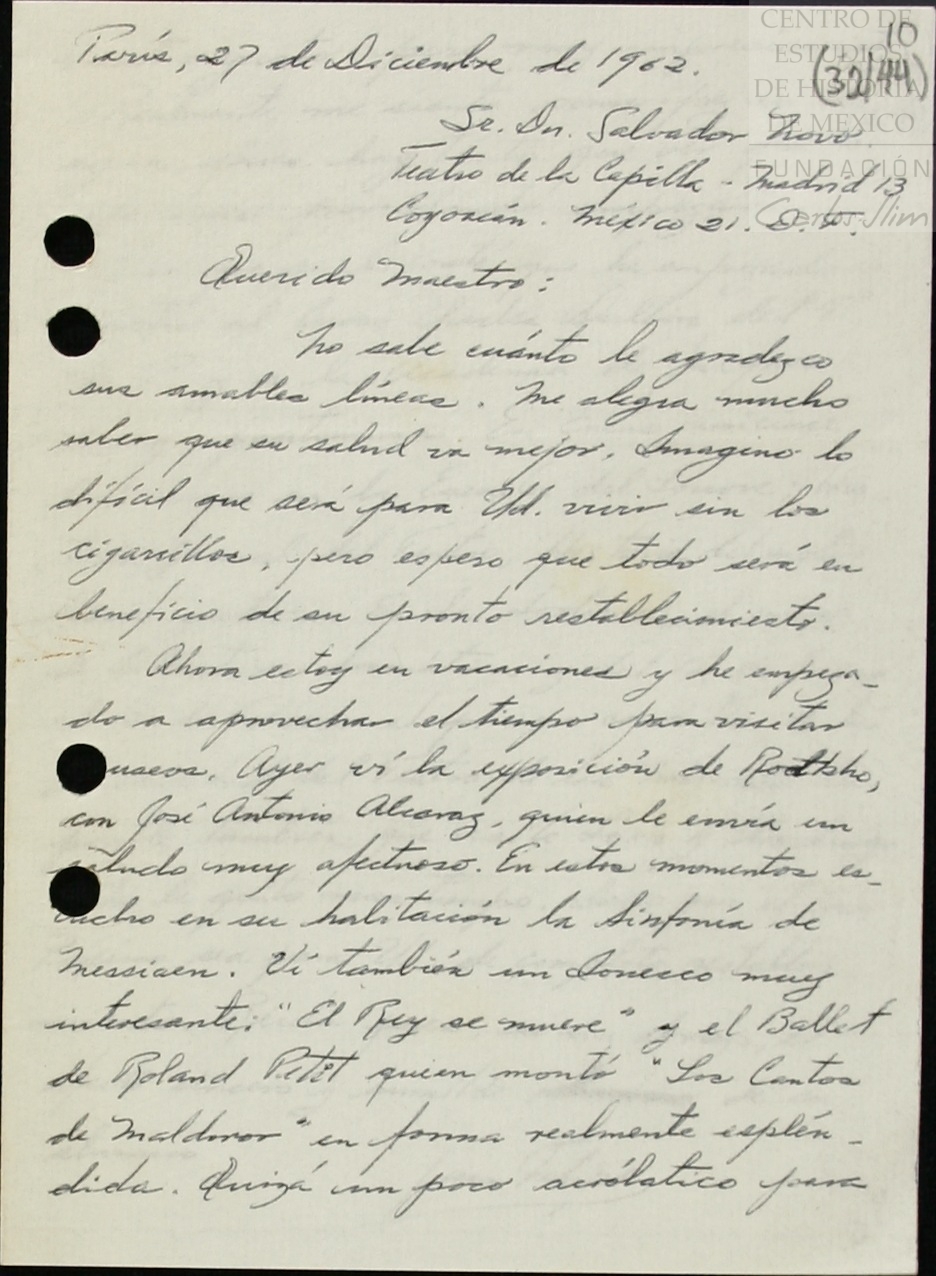 CENTRO DE
ESTUDIOS
DE HISTORIA
DE MEXICO
FUNDACIÓN
Carlos Slim
10
(32/44)
París, 27 de Diciembre de 1962.
Sr. Dn. Salvador Novo.
Teatro de la Capilla - Madrid 13
Coyoacán. México 21. D. F.
Querido Maestro:
No sabe cuánto le agradezco
sus amables líneas. Me alegra mucho
saber que su salud va mejor. Imagino lo
difícil que será para Ud. vivir sin los
cigarrillos, pero espero que todo será en
beneficio de su pronto restablecimiento.
Ahora estoy en vacaciones y he empeza-
do a aprovechar el tiempo para visitar
museos. Ayer ví la exposición de Rothko,
con José Antonio Alcaraz, quien le envía un
saludo muy afectuoso. En estos momentos es-
cucho en su habitación la Sinfonía de
Messiaen. Ví también un Ionesco muy
interesante: "El Rey se muere" y el Ballet
de Roland Petit quien montó "Los Cantos
de Maldoror" en forma realmente esplén-
dida. Quizá un poco acróbatico para